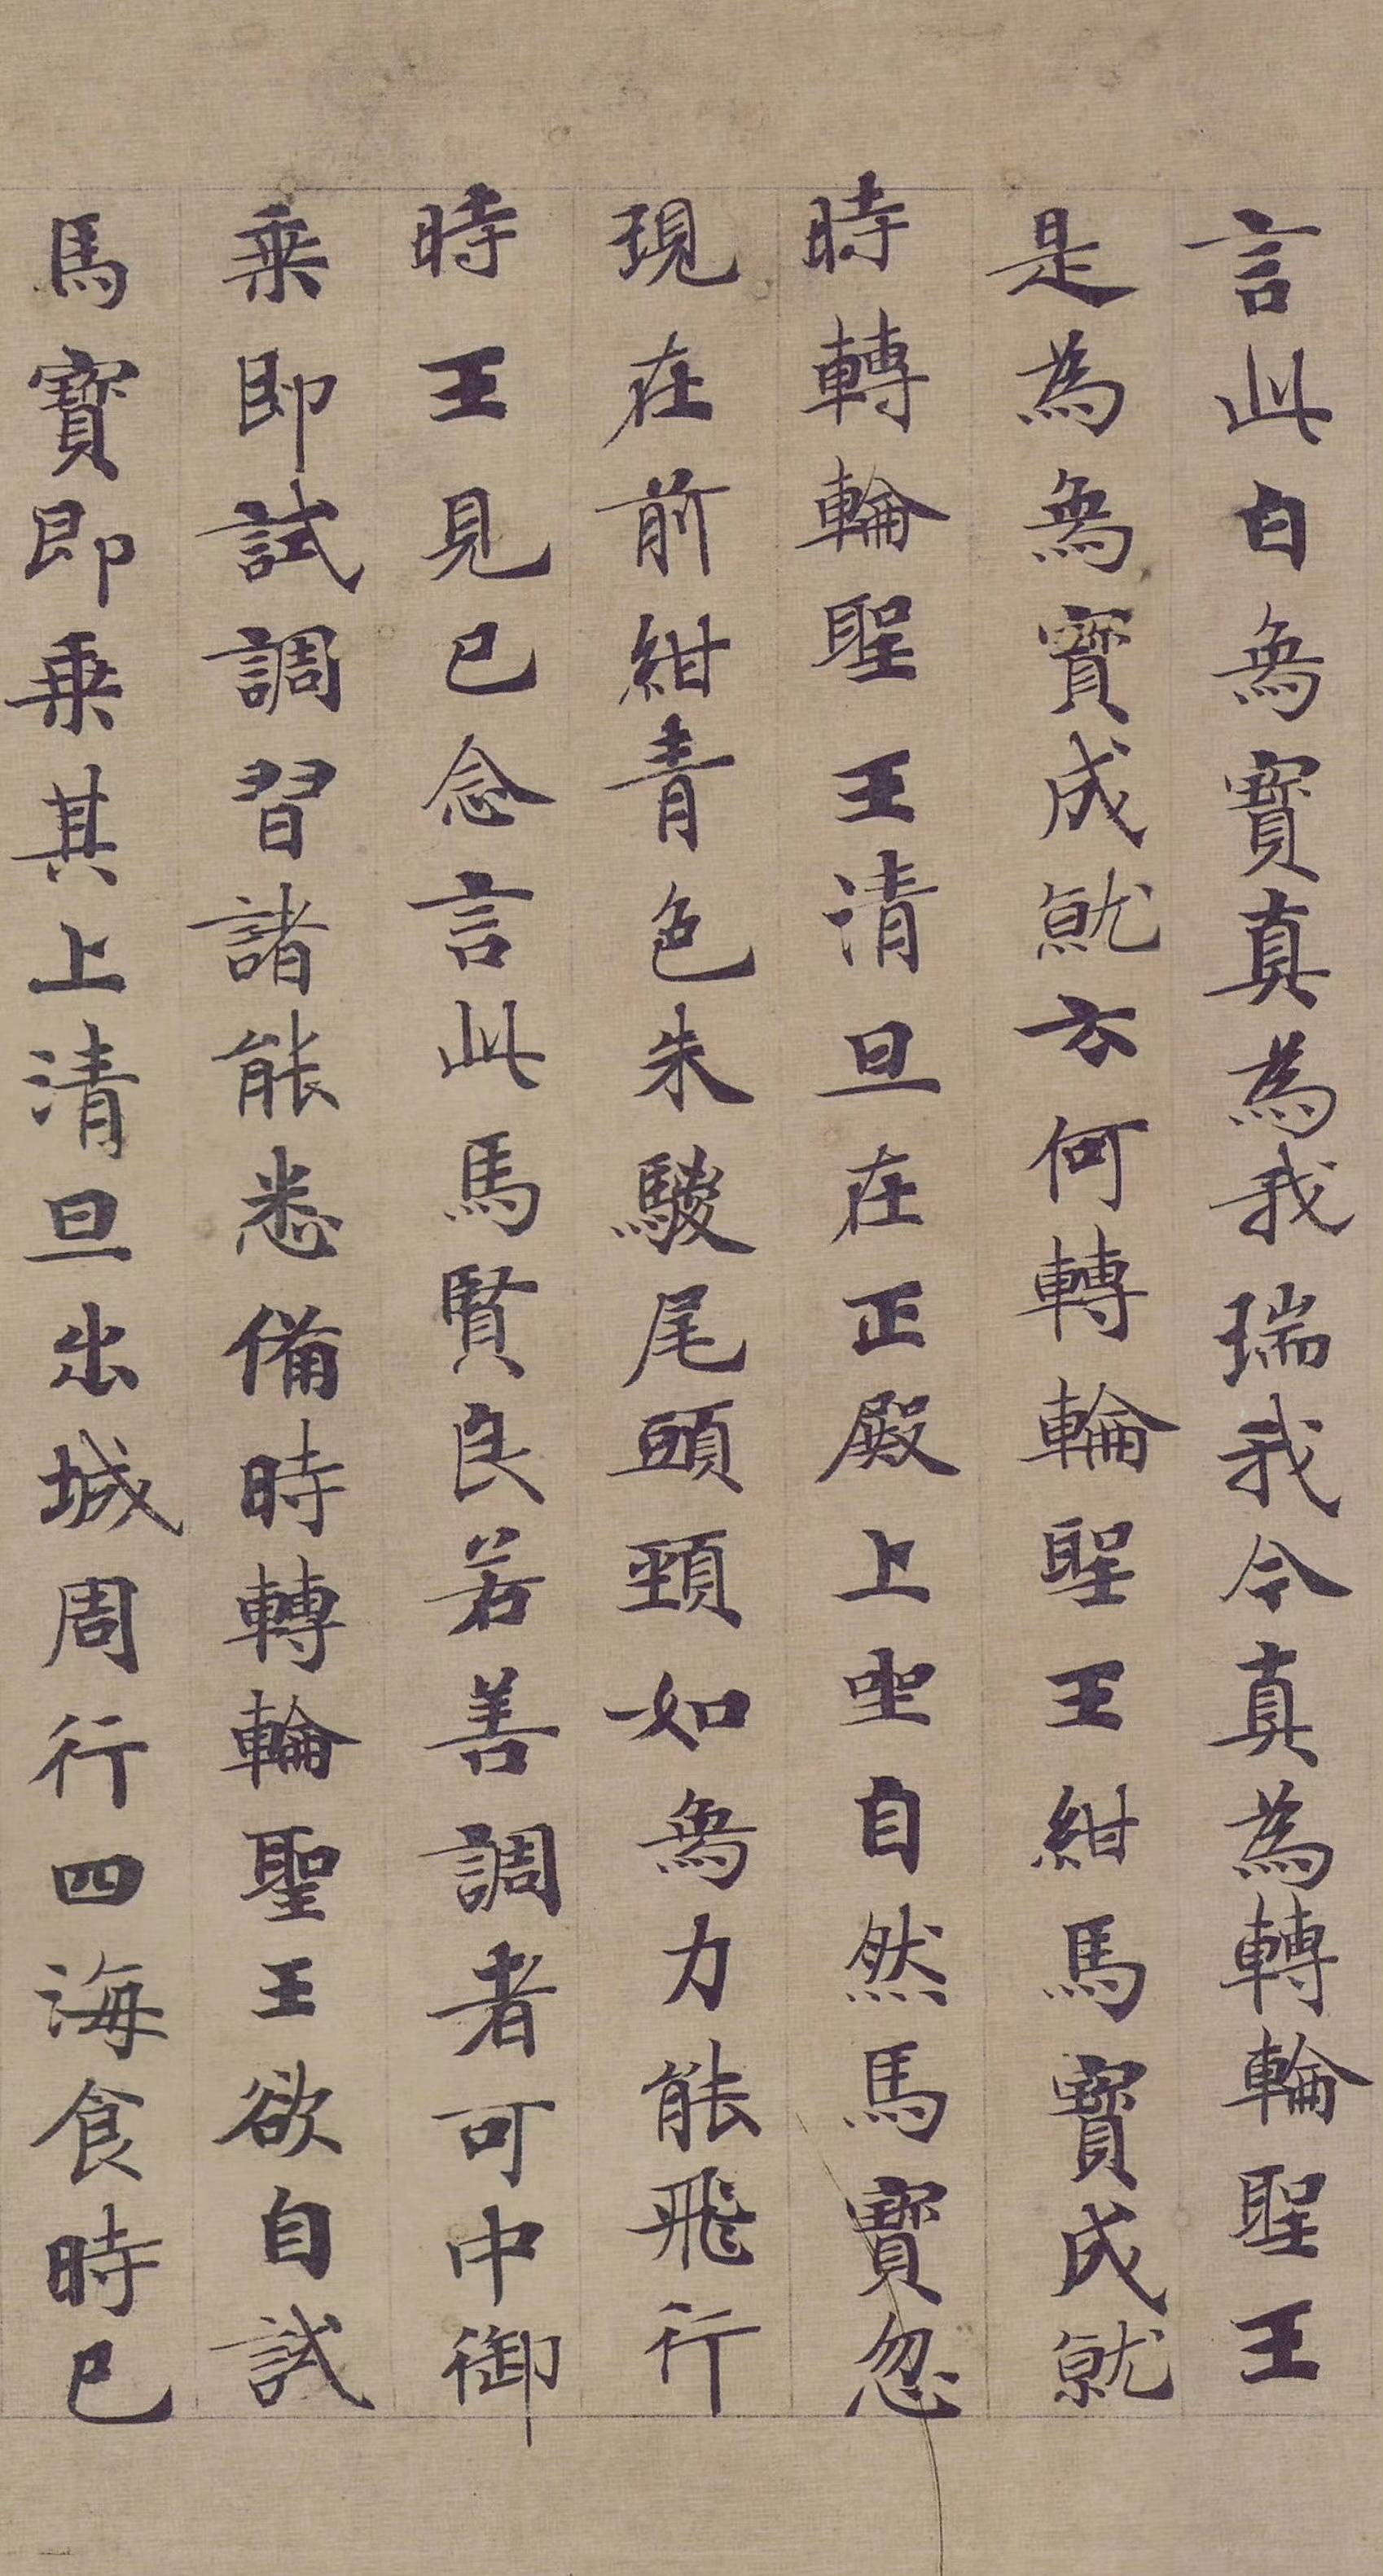 言此白象寶真為我瑞我今真為轉輪聖王
是為象寶成就云何轉輪聖王紺馬寶成就
時轉輪聖王清旦在正殿上坐自然馬寶忽
現在前紺青色朱騣尾頭頸如象力能飛行
時王見已念言此馬賢良若善調者可中御
乗即試調習諸能悉備時轉輪聖王欲自試
馬寶即乗其上清旦出城周行四海食時已